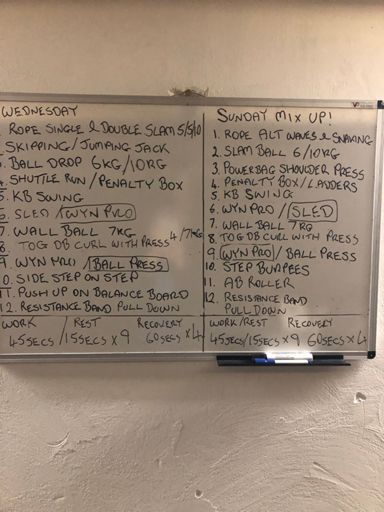 WEDNESDAY
1. ROPE SINGLE & DOUBLE SLAM 5/5/10
SKIPPING / JUMPING JACK
3. BALL DROP 6KG/10KG
4. SHUTTLE RUN / PENALTY BOX
5. KB SWING
6. SLED / WYN PRO
7. WALL BALL 7KG 4/7KG
8. TOG DB CURL WITH PRESS
9. WYN PRO / BALL PRESS
10. SIDE STEP ON STEP
11. PUSH UP ON BALANCE BOARD
12. RESISTANCE BAND PULL DOWN
WORK / REST RECOVERY
45SECS / 15SECS x 9 60SECS x 4
SUNDAY MIX UP!
1. ROPE ALT WAVES & SNAKING
2. SLAM BALL 6/10KG
3. POWERBAG SHOULDER PRESS
4. PENALTY BOX / LADDERS
5. KB SWING
6. WYN PRO / SLED
7. WALL BALL 7KG
8. TOG DB CURL WITH PRESS
9. WYN PRO / BALL PRESS
10. STEP BURPEES
11. AB ROLLER
12. RESISTANCE BAND
PULL DOWN
WORK/REST RECOVERY
45SECS/15SECS x 9 60SECS x 4